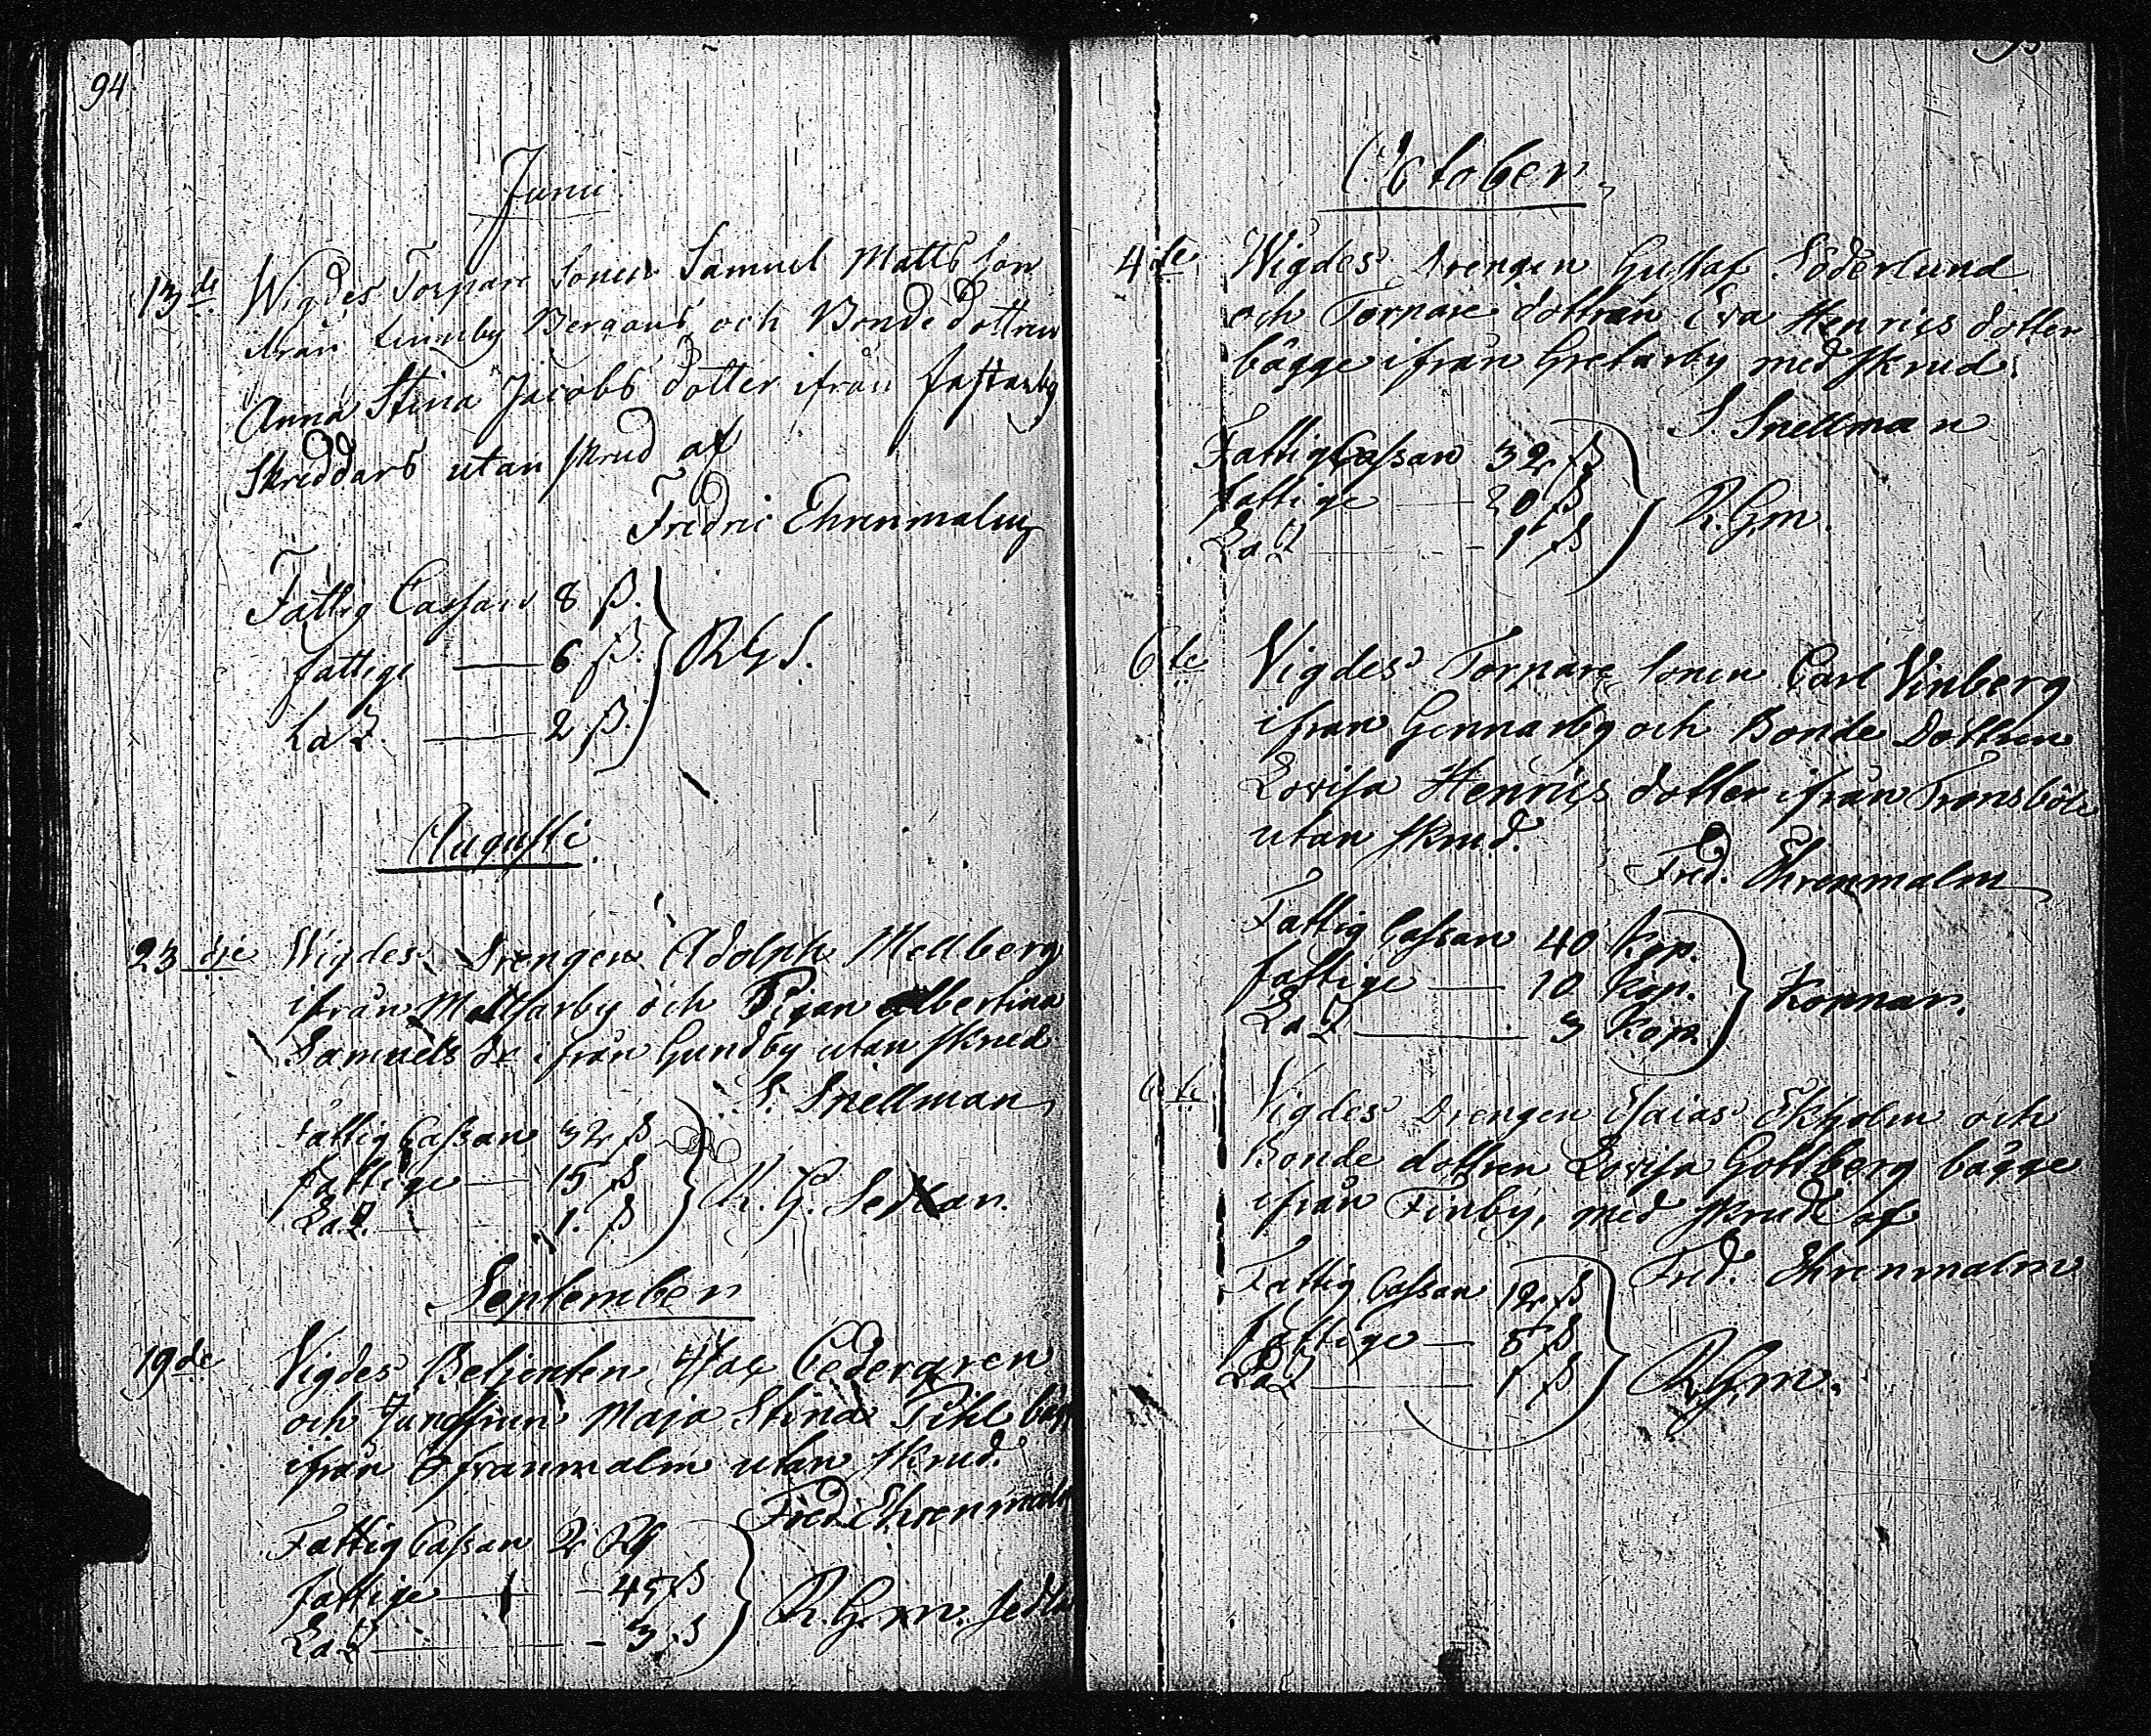 94
Junii
13de Wigdes Torpare Sonen Samuel Matts son
ifrån Finnby Bergans och Bonde dottren
Anna Stina Jacobs dotter ifrån
Skreddars utan skrud af
Fredric Ehrenmalm
Fattig Cassan 8 ß.
fattige — 6 ß.
— 2 ß.
R G S.
Augusti.
23 die Wigdes Drengen Adolph Mellberg
ifrån och Pigan Albertina
Samuels dr ifrån Gundby utan skrud
S. Snellman
Fattig Cassan 32 ß
fattige — 15 ß
— 1. ß
R. G. Sedlar.
September
19de Vigdes Betjenten Isac Cedergren
och Jungfrun Maja Stina Pihl
ifrån Ofvanmalm utan skrud.
Fred. Ehrenmalm
Fattig Cassan 2
fattige — 45 ß
— 3 ß
R. Gm.
95
October
4de Wigdes Drengen Gustaf Söderlund
och Torpare dottren Eva Henrics dotter
bägge ifrån Gretarby med skrud.
S Snellman
Fattig Cassan 32 ß
fattige — 20 ß
— 1 ß
R. Gm.
6te Vigdes Torpare Sonen Carl Vinberg
ifrån Gennarby och Bonde Dottren
Lovisa Henrics dotter ifrån Tronsböle
utan skrud.
Fred. Ehrenmalm
Fattig Cassan 40 Kop.
fattige — 10 Kop.
— 3 Kop.
Koppar.
6te Vigdes Drengen Esaias Ekholm och
Bonde dottren Lovisa Gottberg bägge
ifrån Finby, med skrud af
Fred. Ehrenmalm
Fattig Cassan 12 ß
fattige — 5 ß
— 1 ß
R. Gm.